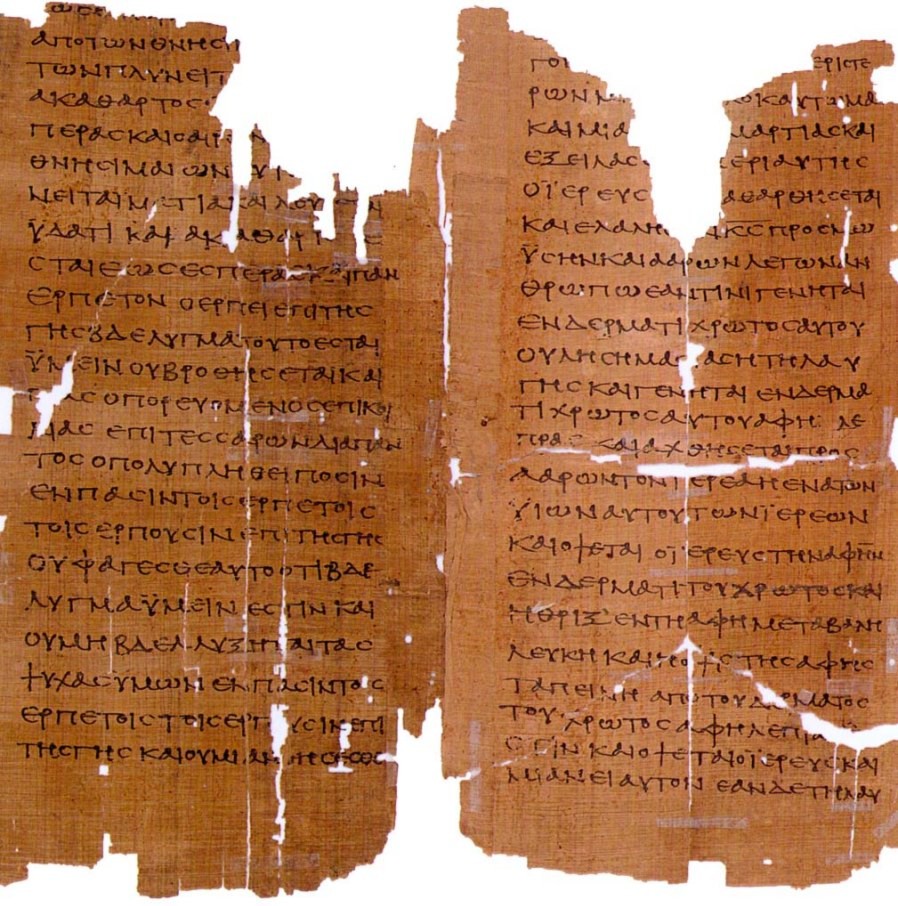 ΑΠΟ ΤΩΝ ΘΝΗϹΙ
ΤΩΝ ΠΛΥΝΕΙ Τ
ΑΚΑΘΑΡΤΟϹ
ΠΕΡΑϹ ΚΑΙ Ο ΑΙΡ
ΘΝΗϹΙΜΑΙΩΝ
ΝΕΙΤΑΙ ΜΑΤΙΑ ΚΑΙ ΛΟΥ
ΫΔΑΤΙ ΚΑΙ ΑΚΑΘΑΡΤ
ϹΤΑΙ ΕΩϹ ΕϹΠΕΡΑϹ ΚΑΙ ΠΑΝ
ΕΡΠΕΤΟΝ Ο ΕΡΠΕΙ ΕΠΙ ΤΗϹ
ΓΗϹ ΒΔΕΛΥΓΜΑ ΤΟΥΤΟ ΕϹΤΑΙ
ΫΜΕΙΝ ΟΥ ΒΡΩΘΗϹΕΤΑΙ ΚΑΙ
Ο ΠΟΡΕΥΟΜΕΝΟϹ ΕΠΙ ΚΟΙ
ΛΙΑϹ ΕΠΙ ΤΕϹϹΑΡΩΝ ΔΙΑ ΠΑΝ
ΤΟϹ Ο ΠΟΛΥΠΛΗΘΕΙ ΠΟϹΙΝ
ΕΝ ΠΑϹΙΝ ΤΟΙϹ ΕΡΠΕΤΟΙϹ
ΤΟΙϹ ΕΡΠΟΥϹΙΝ ΕΠΙ ΤΗϹ ΓΗϹ
ΟΥ ΦΑΓΕϹΘΕ ΑΥΤΟ ΟΤΙ ΒΔΕ
ΛΥΓΜΑ ΫΜΕΙΝ ΕϹΤΙΝ ΚΑΙ
ΟΥ ΜΗ ΒΔΕΛΛΥΞΗΤΑΙ ΤΑϹ
ΨΥΧΑϹ ΥΜΩΝ ΕΝ ΠΑϹΙΝ ΤΟΙϹ
ΕΡΠΕΤΟΙϹ ΤΟΙϹ ΕΡΠΟΥϹΙΝ ΕΠΙ
ΤΗϹ ΓΗϹ ΚΑΙ ΟΥ ΜΙΑΝΘΗϹΕϹΘΕ
ΓΟΥ ΕΡΙϹΤΕ
ΡΩΝ ΚΑΥΤΩΜΑ
ΚΑΙ ΜΙΑ ΜΑΡΤΙΑϹ ΚΑΙ
ΕΞΕΙΛΑϹ ΕΡΙ ΑΥΤΗϹ
Ο ΪΕΡΕΥϹ ΑΘΑΡΘΗϹΕΤΑΙ
ΚΑΙ ΕΛΑΛΗ ΚϹ ΠΡΟϹ ΜΩ
ΫϹΗΝ ΚΑΙ ΑΑΡΩΝ ΛΕΓΩΝ ΑΝ
ΘΡΩΠΩ ΕΑΝ ΤΙΝΙ ΓΕΝΗΤΑΙ
ΕΝ ΔΕΡΜΑΤΙ ΧΡΩΤΟϹ ΑΥΤΟΥ
ΟΥΛΗ ϹΗΜΑϹΙΑϹ Η ΤΗΛΑΥ
ΓΗϹ ΚΑΙ ΓΕΝΗΤΑΙ ΕΝ ΔΕΡΜΑ
ΤΙ ΧΡΩΤΟϹ ΑΥΤΟΥ ΑΦΗ ΛΕ
ΠΡΑϹ ΚΑΙ ΑΧΘΗϹΕΤΑΙ ΠΡΟϹ
ΑΑΡΩΝ ΤΟΝ ΪΕΡΕΑ Η ΕΝΑ ΤΩΝ
ΫΙΩΝ ΑΥΤΟΥ ΤΩΝ ΪΕΡΕΩΝ
ΚΑΙ ΟΨΕΤΑΙ Ο ΪΕΡΕΥϹ ΤΗΝ ΑΦΗΝ
ΕΝ ΔΕΡΜΑΤΙ ΤΟΥ ΧΡΩΤΟϹ ΚΑΙ
Η ΘΡΙΞ ΕΝ ΤΗ ΑΦΗ ΜΕΤΑΒΑΛΗ
ΛΕΥΚΗ ΚΑΙ Η ΟΨΙϹ ΤΗϹ ΑΦΗϹ
ΤΑΠΕΙΝΗ ΑΠΟ ΤΟΥ ΔΕΡΜΑΤΟϹ
ΤΟΥ ΧΡΩΤΟϹ ΑΦΗ ΛΕΠΡΑ
ϹΤΙΝ ΚΑΙ ΟΨΕΤΑΙ Ο ΪΕΡΕΥϹ ΚΑΙ
ΜΙΑΝΕΙ ΑΥΤΟΝ ΕΑΝ ΔΕ ΤΗΛΑΥ